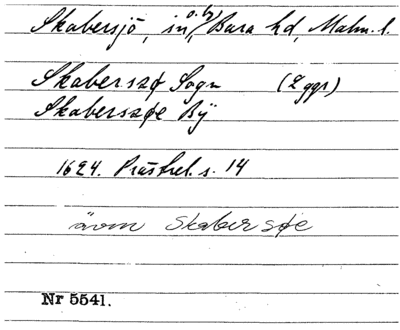 Skabersjö, sn o. by, Bara hd, Malm. l.
Skaberszø Sogn (2 ggr)
Skaberszøe Bÿ
1624. Prästrel. s. 14
även Skabersøe
Nr 5541.